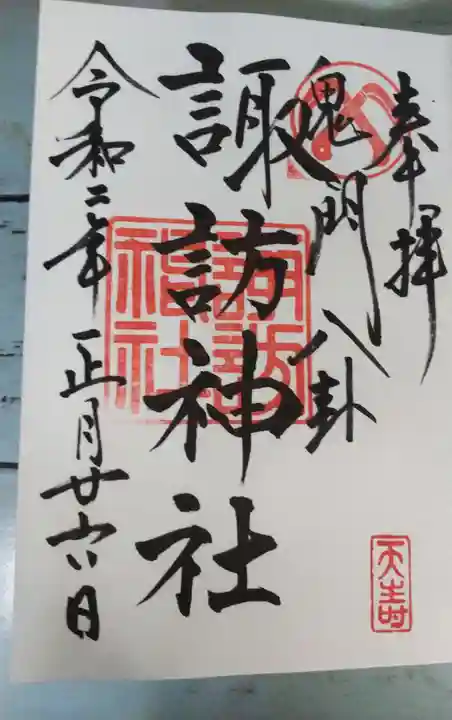 奉拝
鬼門八卦
諏訪神社
令和二年正月廿六日
諏訪神社
天生時